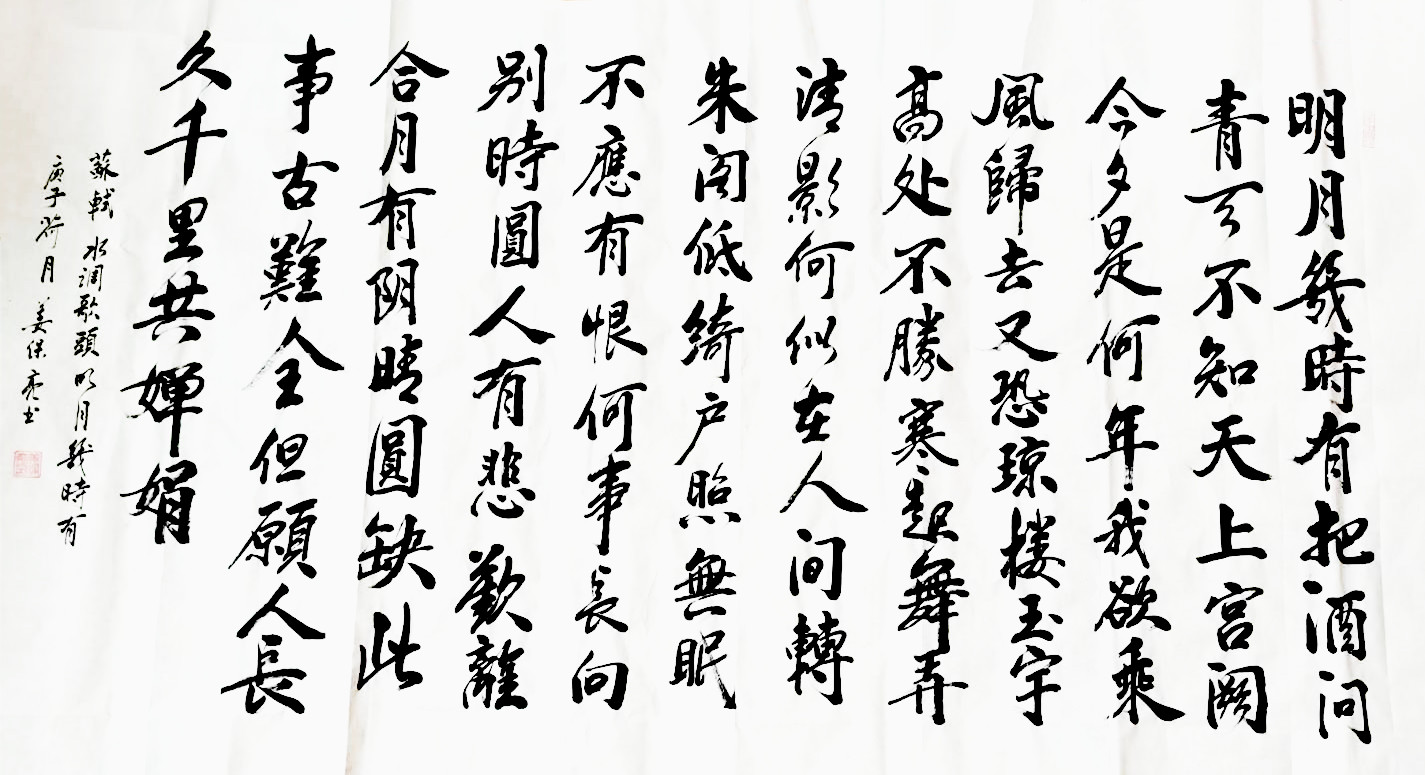 明月幾時有把酒问
青天不知天上宫阙
今夕是何年我欲乘
風歸去又恐琼楼玉宇
高处不勝寒起舞弄
清影何似在人间轉
朱阁低绮户照無眠
不應有恨何事長向
别時圓人有悲歡離
合月有阴晴圓缺此
事古難全但願人長
久千里共婵娟
蘇軾水调歌頭明月幾時有
庚子荷月姜保亮书